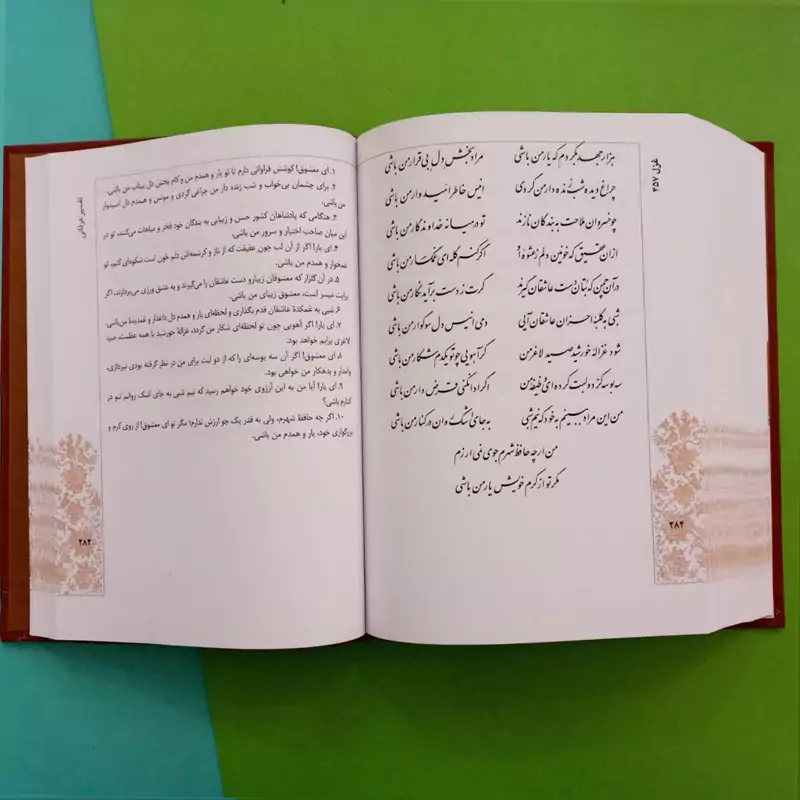 غزل ۴۵۷
هزار جهد بکردم که یار من باشی مراد بخش دل بی قرار من باشی
چراغ دیده شب زنده دار من گردی انیس خاطر امیدوار من باشی
چو خسروان ملاحت به بندگان نازند تو در میانه خداوندگار من باشی
از آن عقیق که خونین دلم ز عشوه او اگر کنم گله ای غمگسار من باشی
در آن چمن که بتان دست عاشقان گیرند گرت ز دست برآید نگار من باشی
شبی به کلبه احزان عاشقان آیی دمی انیس دل سوگوار من باشی
شود غزاله خورشید صید لاغر من گر آهویی چو تو یکدم شکار من باشی
سه بوسه کز دو لبت کرده ای وظیفه من اگر ادا نکنی قرض دار من باشی
من این مراد ببینم به خود که نیم شبی به جای اشک روان در کنار من باشی
من ارچه حافظ شهرم جوی نمی ارزم
مگر تو از کرم خویش یار من باشی
۲۸۴
تفسیر عرفانی
۱. ای معشوق! کوشش فراوانی دارم تا تو یار و همدم من و کام بخش دل بیتاب من باشی.
۲. برای چشمان بی‌خواب و شب زنده دار من چراغی گردی و مونس و همدم دل امیدوار
من باشی.
۳. هنگامی که پادشاهان کشور حسن و زیبایی به بندگان خود فخر و مباهات می‌کنند، تو در
این میان صاحب اختیار و سرور من باشی.
۴. ای یار! اگر از آن لب چون عقیقت که از ناز و کرشمه‌اش دلم خون است شکوه‌ای کنم، تو
غمخوار و همدم من باشی.
۵. در آن گلزار که معشوقان زیبارو دست عاشقان را می‌گیرند و به عشق ورزی می‌پردازند، اگر
برایت میسر است، معشوق زیبای من باشی.
۶. شبی به غمکدهٔ عاشقان قدم بگذاری و لحظه‌ای یار و همدم دل داغدار و غمدیدهٔ من باشی.
۷. ای یار! اگر آهویی چون تو لحظه‌ای شکار من گردد، غزالهٔ خورشید با همه عظمت، صید
لاغری برایم خواهد بود.
۸. ای معشوق! اگر آن سه بوسه‌ای را که از دو لبت برای من در نظر گرفته بودی نپردازی،
وامدار و بدهکار من خواهی بود.
۹. ای یار! آیا من به این آرزوی خود خواهم رسید که نیم شبی به جای اشک روانم تو در
کنارم باشی؟
۱۰. اگر چه حافظ شهرم، ولی به قدر یک جو ارزش ندارم؛ مگر تو ای معشوق! از روی کرم و
بزرگواری خود، یار و همدم من باشی.
۲۸۲